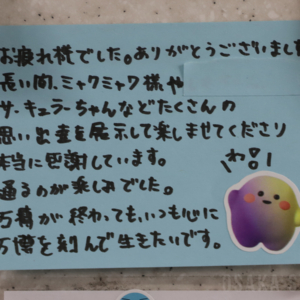 お疲れ様でした。ありがとうございまし
長い間、ミャクミャク様や
サーキュラーちゃんなどたくさんの
思い出を展示して楽しませてくださり
本当に感謝しています。
通るのが楽しみでした。
万博が終わっても、いつも心に
万博を刻んで生きたいです。